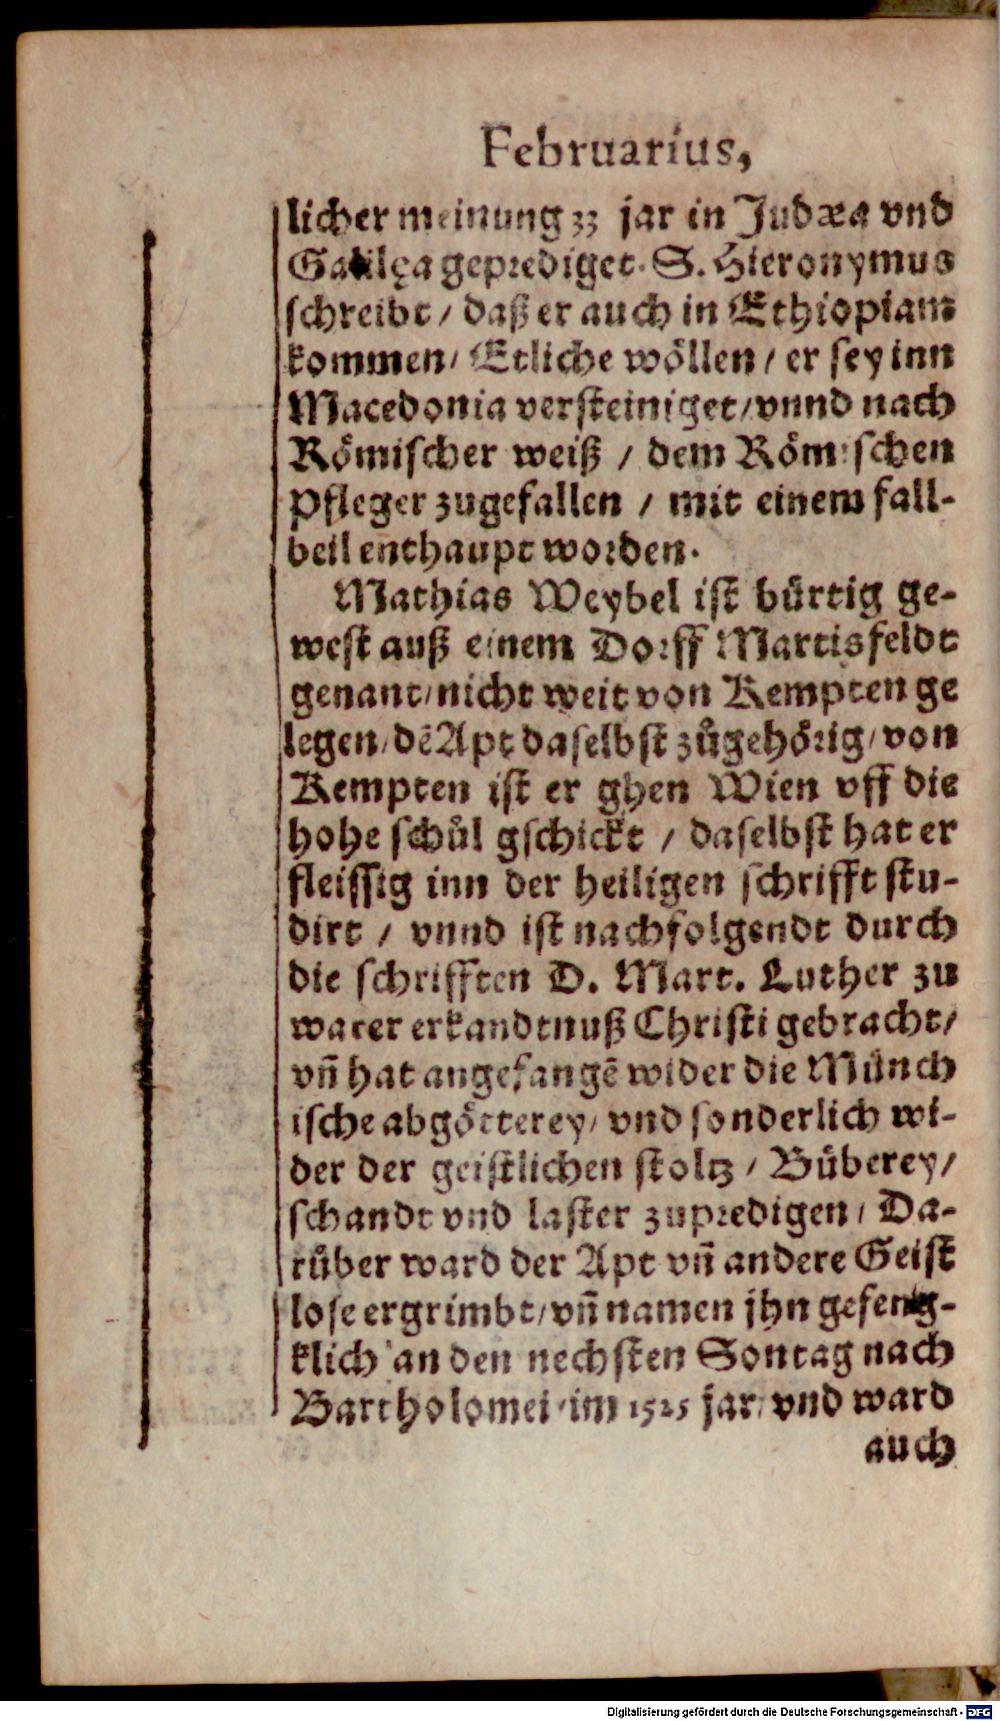 Februarius,
licher meinung 33 jar in Judæa vnd
Galilęa geprediget. S. Hieronymus
schreibt / daß er auch in Ethiopiam
kommen / Etliche wöllen / er sey inn
Macedonia versteiniget / vnnd nach
Römischer weiß / dem Römischen
Pfleger zugefallen / mit einem fall-
beil enthaupt worden.
Mathias Weybel ist bürtig ge-
west auß einem Dorff Martisfeldt
genant / nicht weit von Kempten ge
legen / dē Apt daselbst zůgehörig / von
Kempten ist er ghen Wien vff die
hohe schůl gschickt / daselbst hat er
fleissig inn der heiligen schrifft stu-
dirt / vnnd ist nachfolgendt durch
die schrifften D. Mart. Luther zu
warer erkandtnuß Christi gebracht /
vn̄ hat angefangē wider die Münch
ische abgötterey / vnd sonderlich wi-
der der geistlichen stoltz / Büberey /
schandt vnd laster zupredigen / Da-
rüber ward der Apt vn̄ andere Geist
lose ergrimbt / vn̄ namen jhn gefeng-
klich an den nechsten Sontag nach
Bartholomei / im 1525 jar / vnd ward
auch
Digitalisierung gefördert durch die Deutsche Forschungsgemeinschaft - DFG